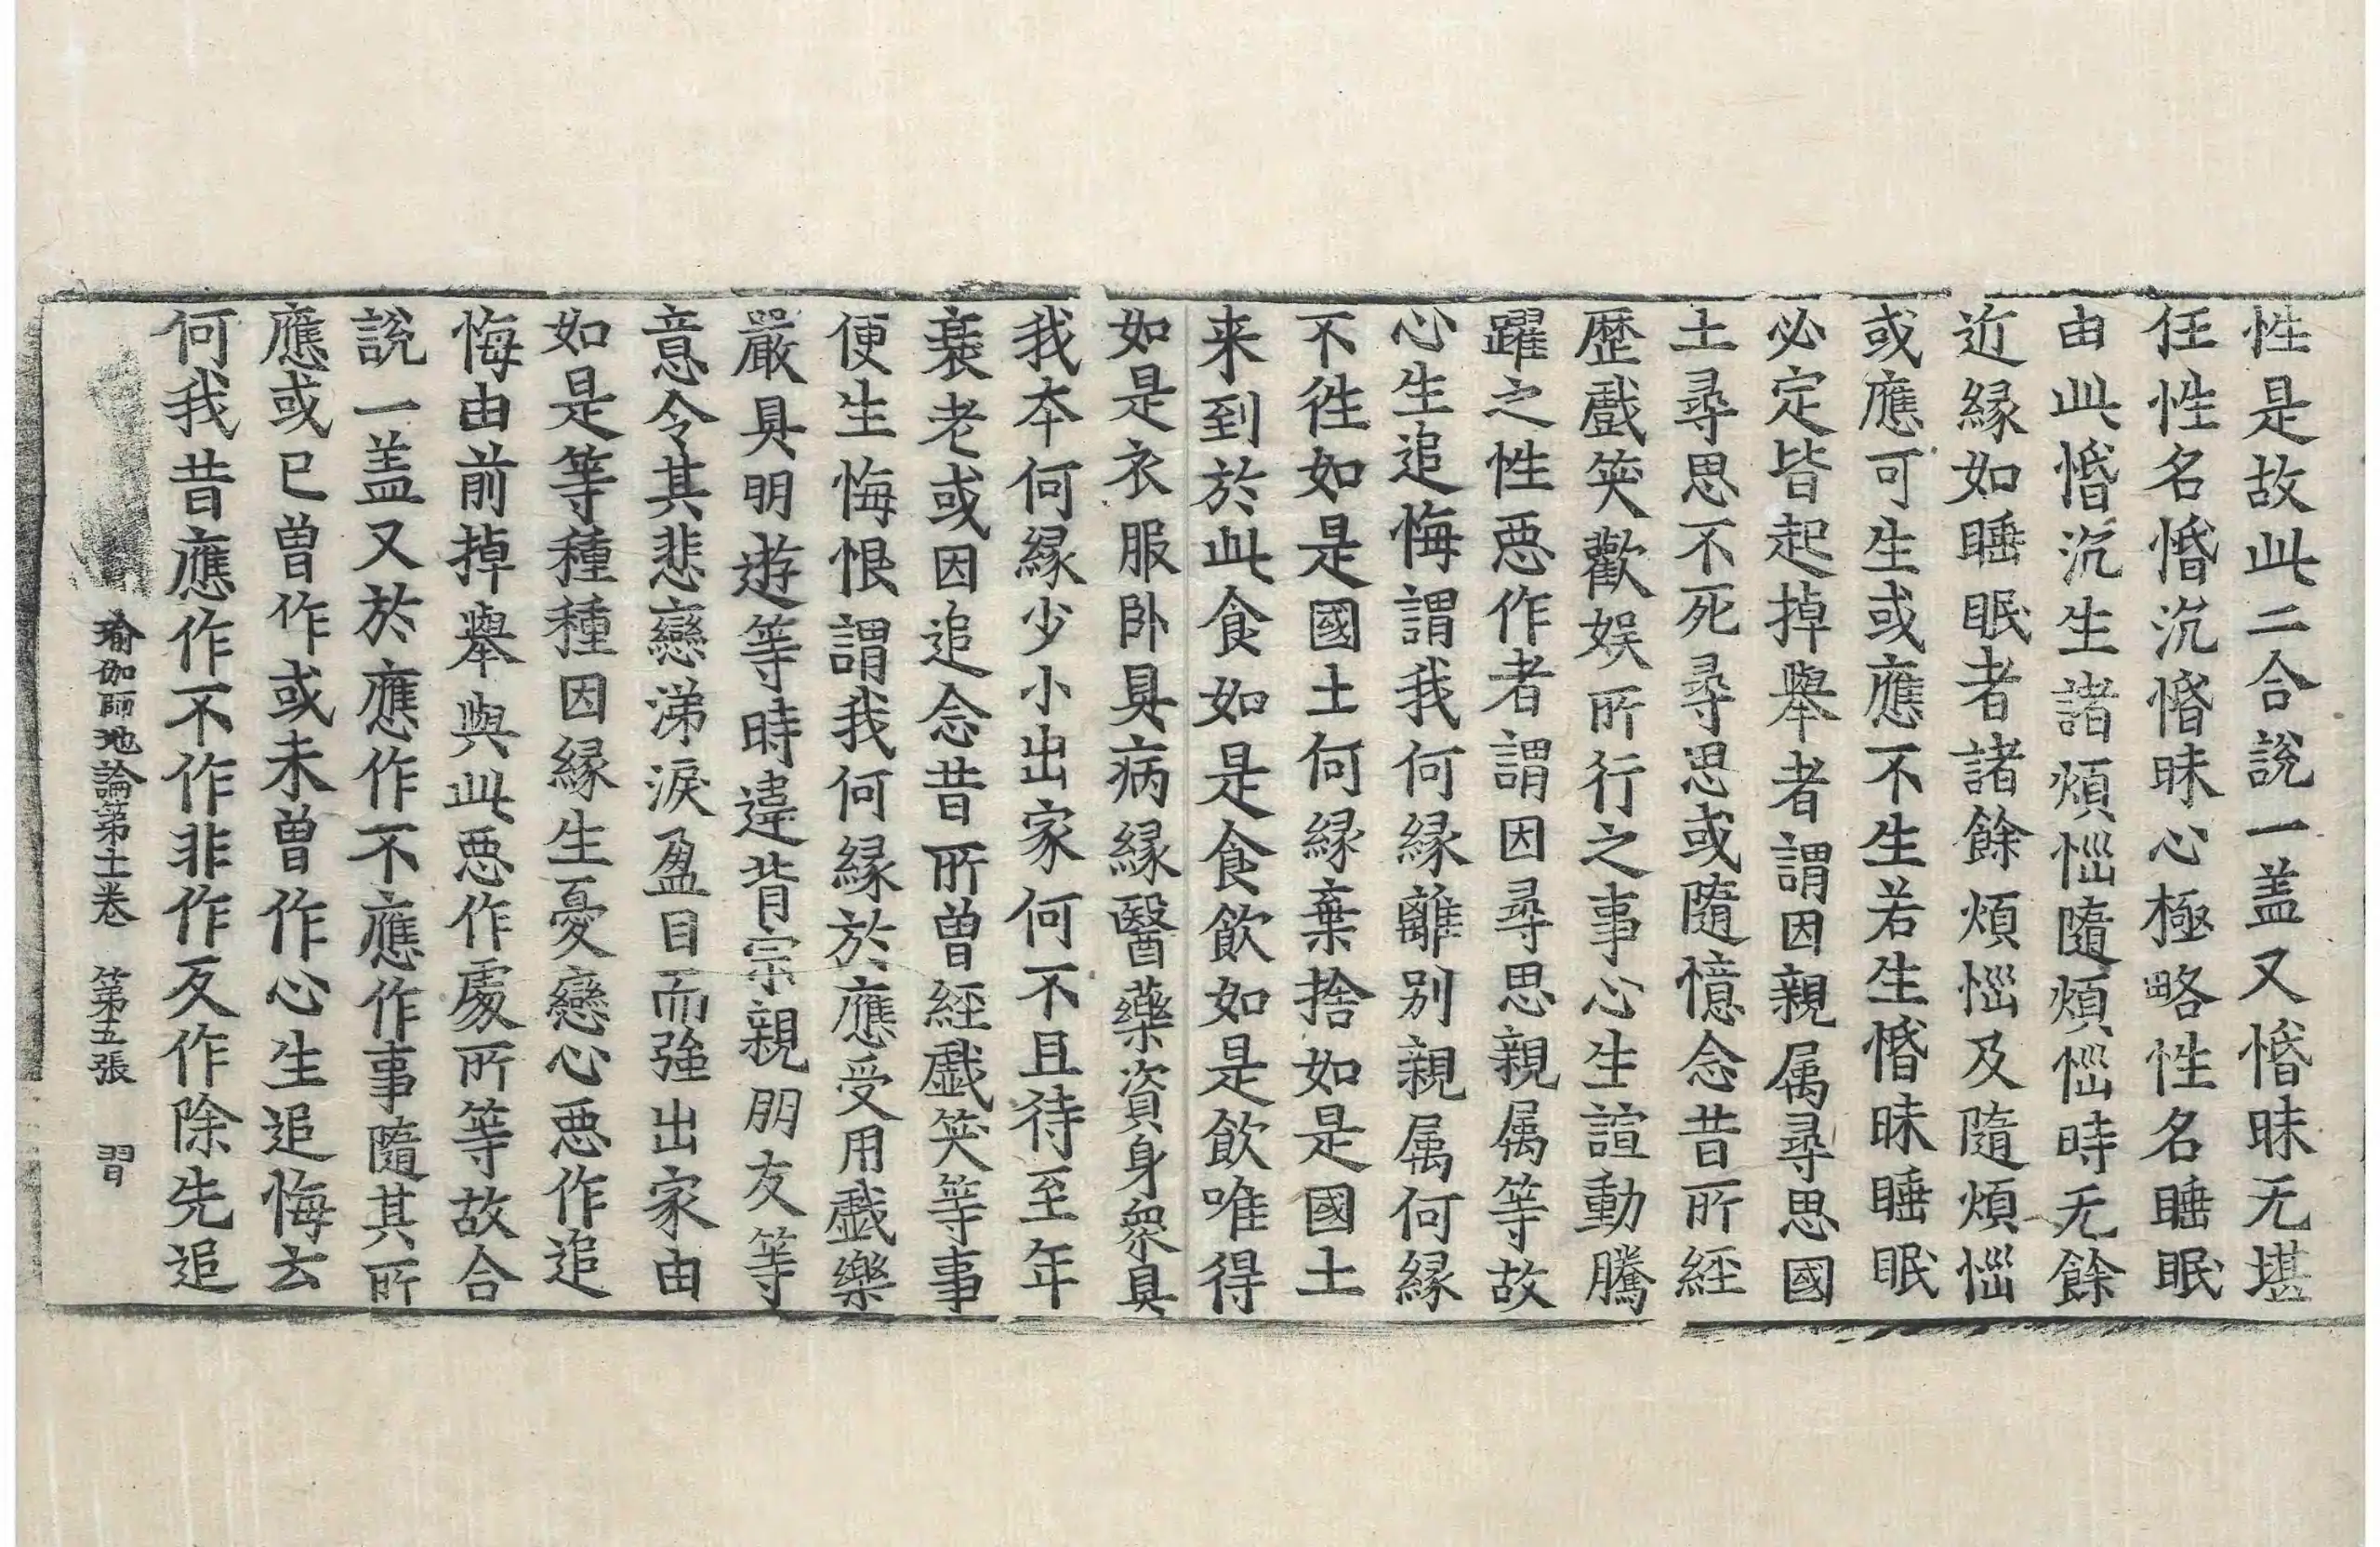 性是故此二合說一盖又惛昧无堪
任性名惛沉惛昧心極略性名睡眠
由此惛沉生諸煩惱隨煩惱時无餘
近縁如睡眠者諸餘煩惱及隨煩惱
或應可生或應不生若生惛昧睡眠
必定皆起掉舉者謂因親属尋思國
土尋思不死尋思或隨憶念昔所經
歷戲笑歡娱所行之事心生諠動騰
躍之性惡作者謂因尋思親属等故
心生追悔謂我何縁離别親属何縁
不徃如是國土何縁棄捨如是國土
来到於此食如是食飲如是飲唯得
如是衣服卧具病縁醫藥資身衆具
我本何縁少小出家何不且待至年
衰老或因追念昔所曾經戲笑等事
便生悔恨謂我何縁於應受用戲樂
嚴具朙遊等時違背宗親朋友等
意令其悲戀涕淚盈目而強出家由
如是等種種因縁生憂戀心惡作追
悔由前掉舉與此惡作處所等故合
說一盖又於應作不應作事隨其所
應或已曾作或未曾作心生追悔云
何我昔應作不作非作反作除先追
瑜伽師地論第十一卷 第五張 習